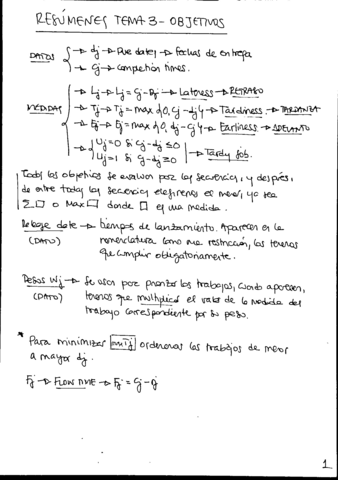 RESÚMENES TEMA 3 - OBJETIVOS
DATOS
→ dj → Due dates → fechas de entrega
→ Cj → completion times.
MEDIDAS
→ Lj → Lj = Cj - Dj → Lateness → RETRASO
→ Tj → Tj = max {0, Cj - dj} → Tardiness → TARDANZA
→ Ej → Ej = max {0, dj - Cj} → Earliness → ADELANTO
→ Uj = 0 si Cj - dj ≤ 0
Uj = 1 si Cj - dj ≥ 0 → Tardy job.
Todos los objetivos se evaluan para las secuencias, y después,
de entre todas las secuencias elegiremos el menor, ya sea
Σ □ o Max □ donde □ es una medida.
Release date → tiempos de lanzamiento. Aparecen en la
(DATO) nomenclatura como una restricción, los tenemos
que cumplir obligatoriamente.
Pesos Wj → Se usan para priorizar los trabajos, cuando aparecen,
(DATO) tenemos que multiplicar el valor de la medida del
trabajo correspondiente por su peso.
* Para minimizar ordenaremos los trabajos de menor
a mayor dj.
Fj → FLOW TIME → Fj = Cj -
1